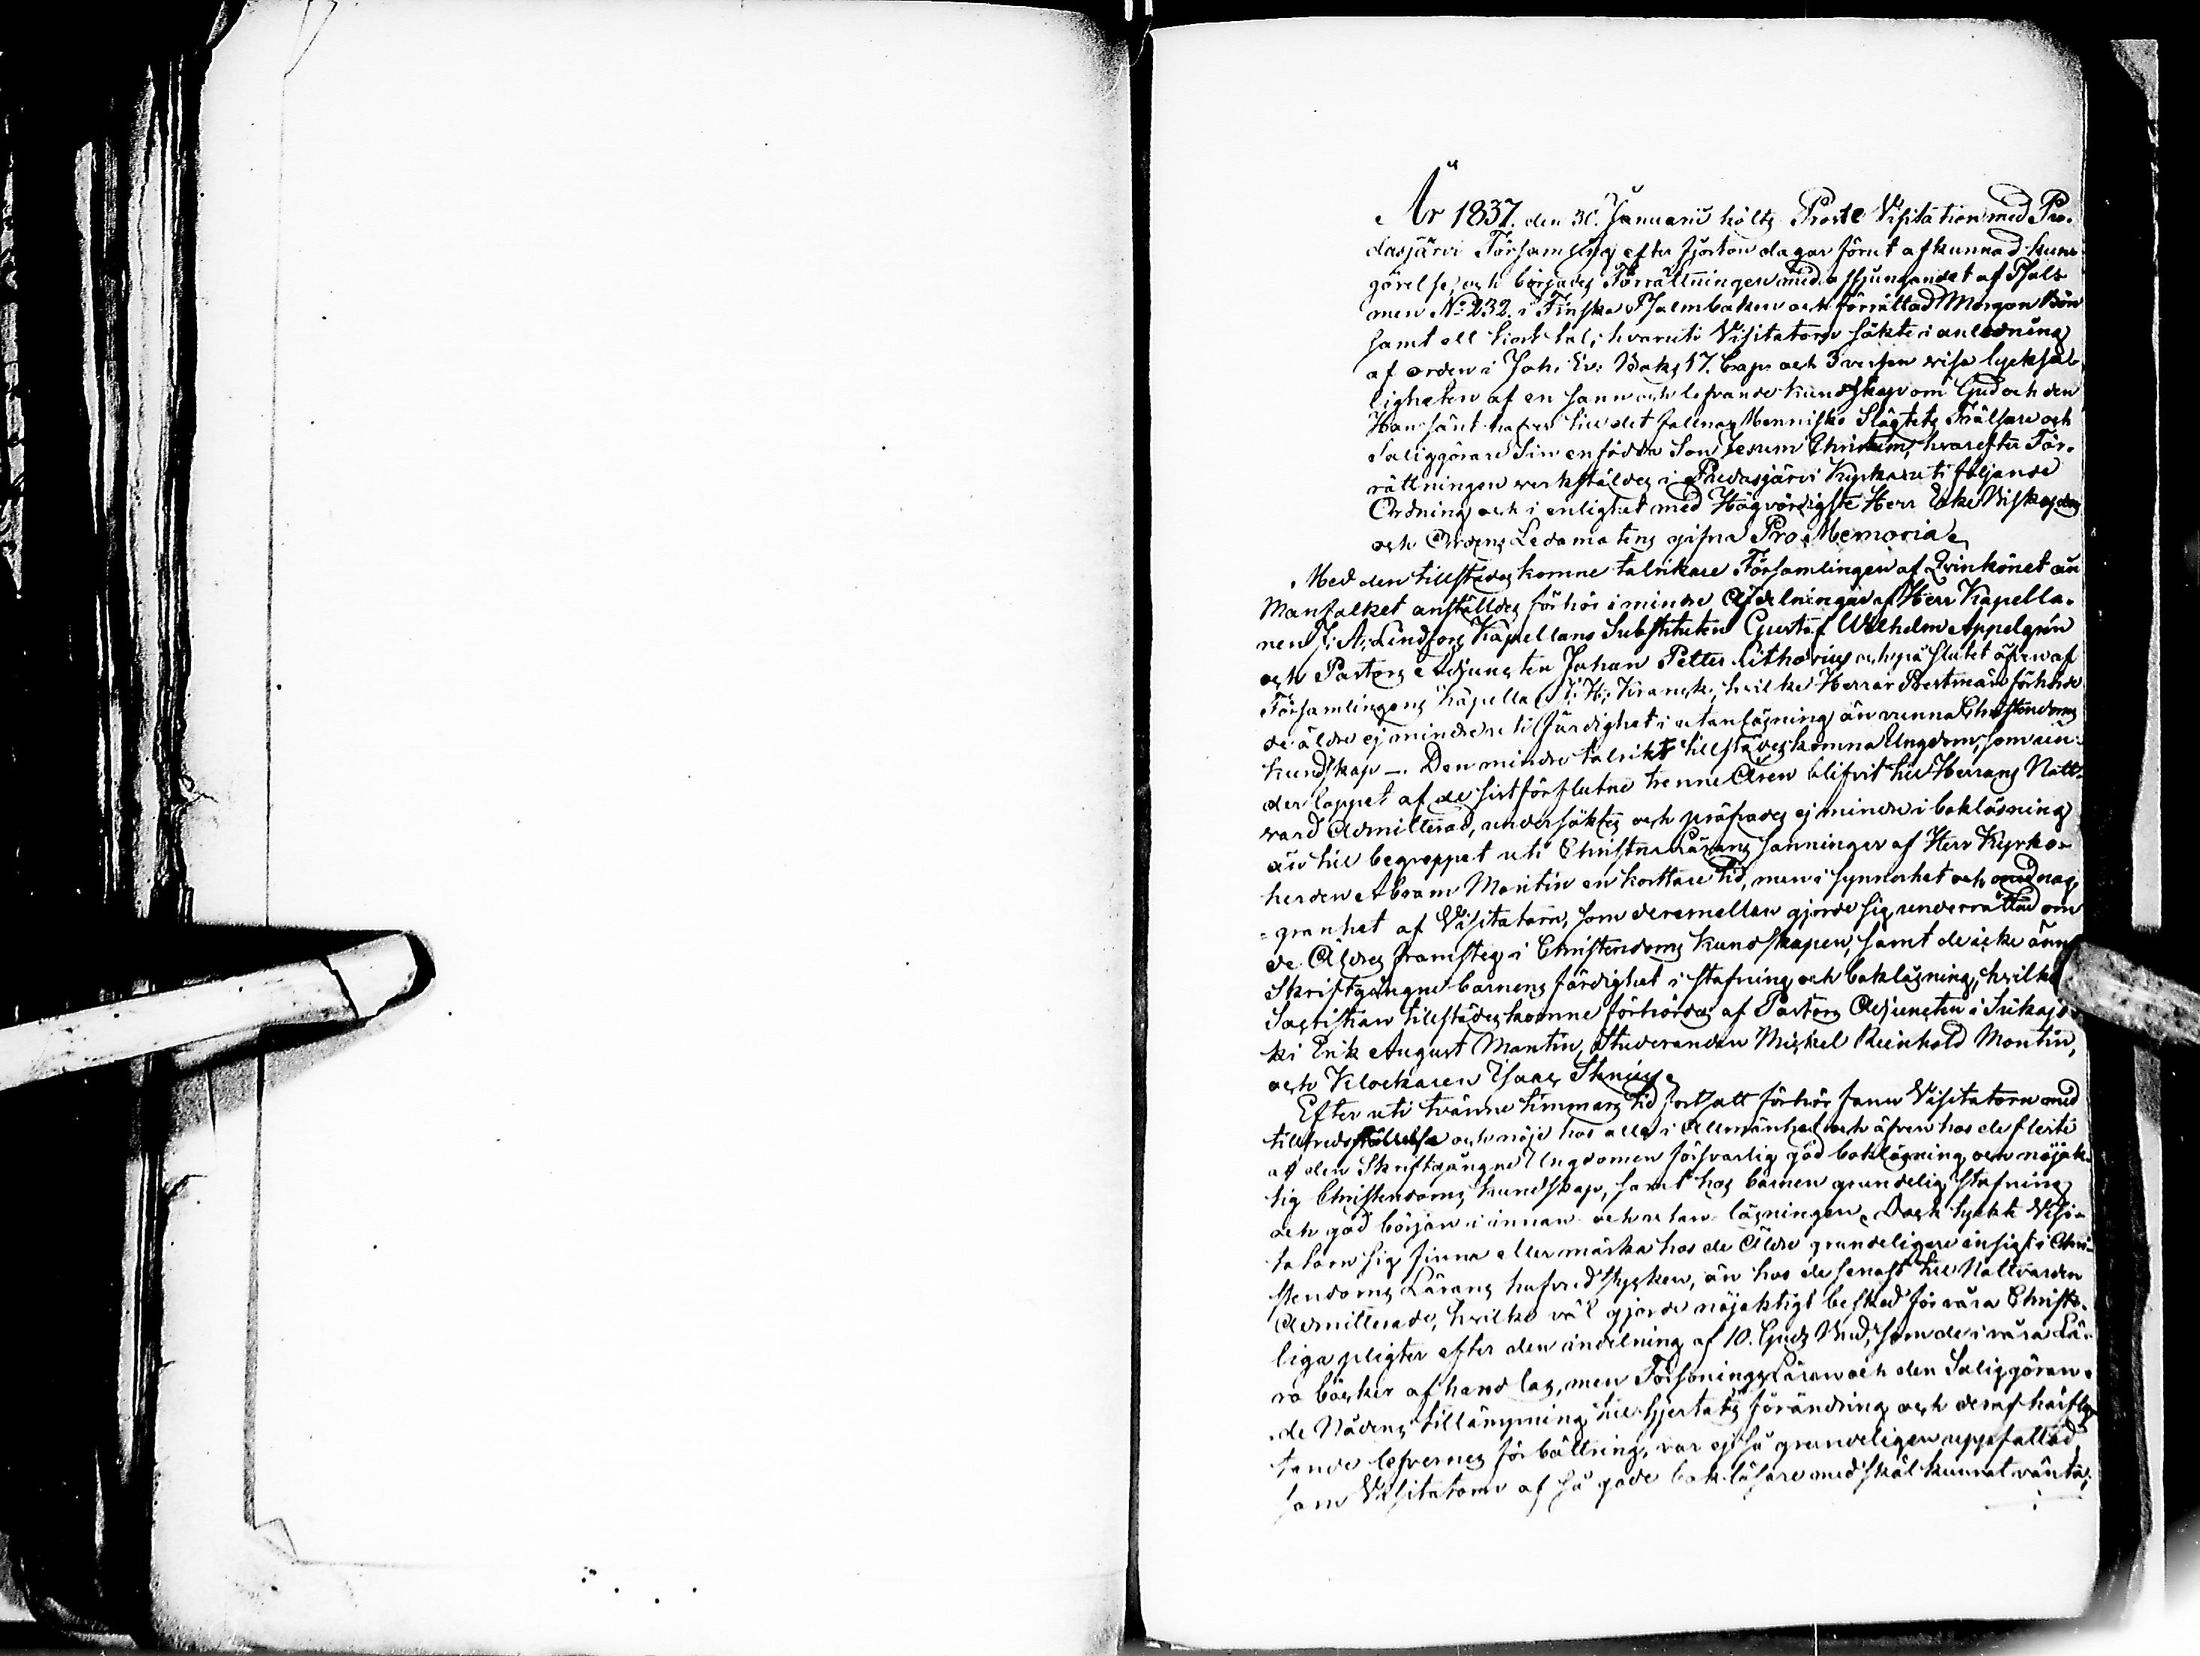 År 1837. den 30. Januarii hölts Prosts Visitation med Pu-
dasjärvi Församling efter fjorton dagar förut afkunnad kun-
görelse, och börjades Förrättningen med afsjungandet af Psal-
men No 232. i Finska Psalmboken och förrättad Morgon Bön
samt ett kort tal, hvaruti Visitatorn sökte i anledning
af orden i Joh. Ev. Boks 17. Cap. och 3 versen visa lycksa-
ligheten af en sann och lefvande kundskap om Gud och den
Han sänt hafver till det fallna Mennisko Slägtets Frälsare och
Saliggörare Sin enfödda Son Jesum Christum, hvarefter För-
rättningen verkställdes i Pudasjärvi Kyrka uti följande
Ordning och i enlighet med Högvördigste Herr Erke Biskopens
och Ordens Ledamotens gifna Pro Memoria.
Med den tillstädes komne talrikare Församlingen af Qvinkönet än
Manfolket anställdes förhör i mindre afdelningar af Herr Kapella-
nen J. A. Lindfors Kapellans Substituten Gustaf Wilhelm Appelgrén
och Pastors Adjuncten Johan Petter Lithovius och på slutet äfven af
Församlingens Kapellan J. H. Kranck, hvilke Herrar Prestmän förhörde
de äldre ej mindre till färdighet i utanläsning än vunna Christendoms
kundskap –. Den mindre talrikt tillstädes komna Ungdom, som un-
der loppet af de sistförflutne trenne Åren blifvit till Herrans Natt-
vard Admitterad, undersöktes och pröfvades ej mindre i bokläsning
än till begreppet uti Christna Lärans sanningar af Herr Kyrko-
herden Abram Montin en kortare tid, men i synnerhet och med nog-
granhet af Visitatorn, som deremellan gjorde sig underrättad om
de Äldres framsteg i Christendoms kundskapen, samt de icke ännu
Skriftgångne barnens färdighet i stafning och bokläsning, hvilka
Sacristian tillstädes komne förhördes af Pastors Adjuncten i Siikajo-
ki Erik August Montin, Studeranden Mickel Reinhold Montin,
och Klockaren Isac
Efter uti tvänne timmars tid fortsatt förhör fann Visitatorn med
tillfredsställelse och nöje hos alla i Allmänhet och äfven hos de fleste
af den Skriftgångne Ungdomen försvarlig god bokläsning och nöjak-
tig Christendoms kundskap, samt hos barnen grundelig stafning
och god början i innan och utan läsningen. Dock tyckte Visi-
tatorn sig finna eller märka hos de Äldre grundeligare insigt i Chri-
stendoms Lärans hufvudstycken, än hos de senast till Nattvarden
Admitterade, hvilka väl gjorde nöjaktigt besked för våra Christe-
liga pligter efter den indelning af 10. Guds Bud, som de i våra Lä-
ro böcker afhandlas, men Försonings Läran och den Saliggöran-
de Nådens tillämpning till hjertats förändring och deraf härfly-
tande lefvernes förbättring, var ej så grundeligen uppfattad
som Visitatorn af så gode bokläsare med skäl kunnat vänta;